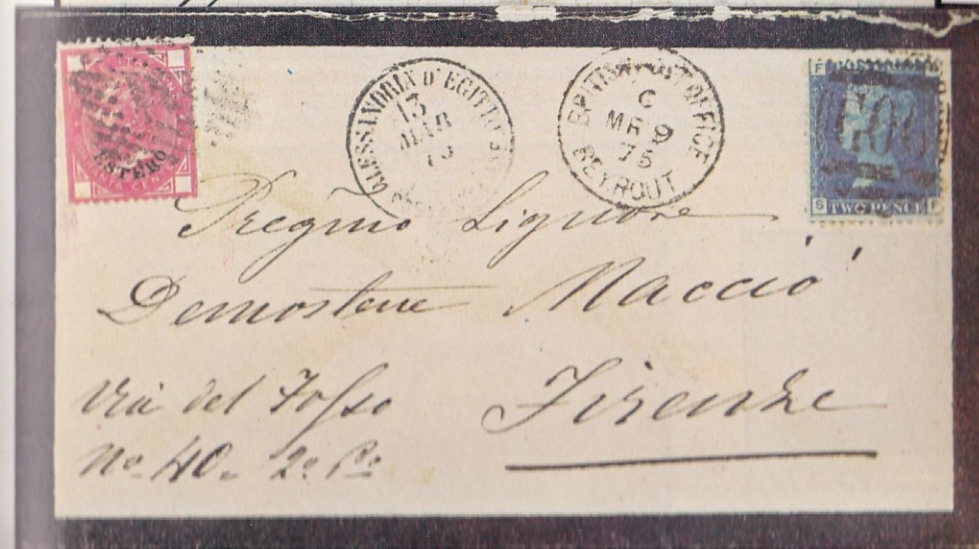 ESTERO
ALESSANDRIA D'EGITTO
13
MAR
75
BRITISH POST OFFICE
C
MR 9
75
BEYROUT
F
S TWO PENCE F
Pregmo Signore
Demostene Macciò
Via del Fosso
No. 40. 2o. Po
Firenze